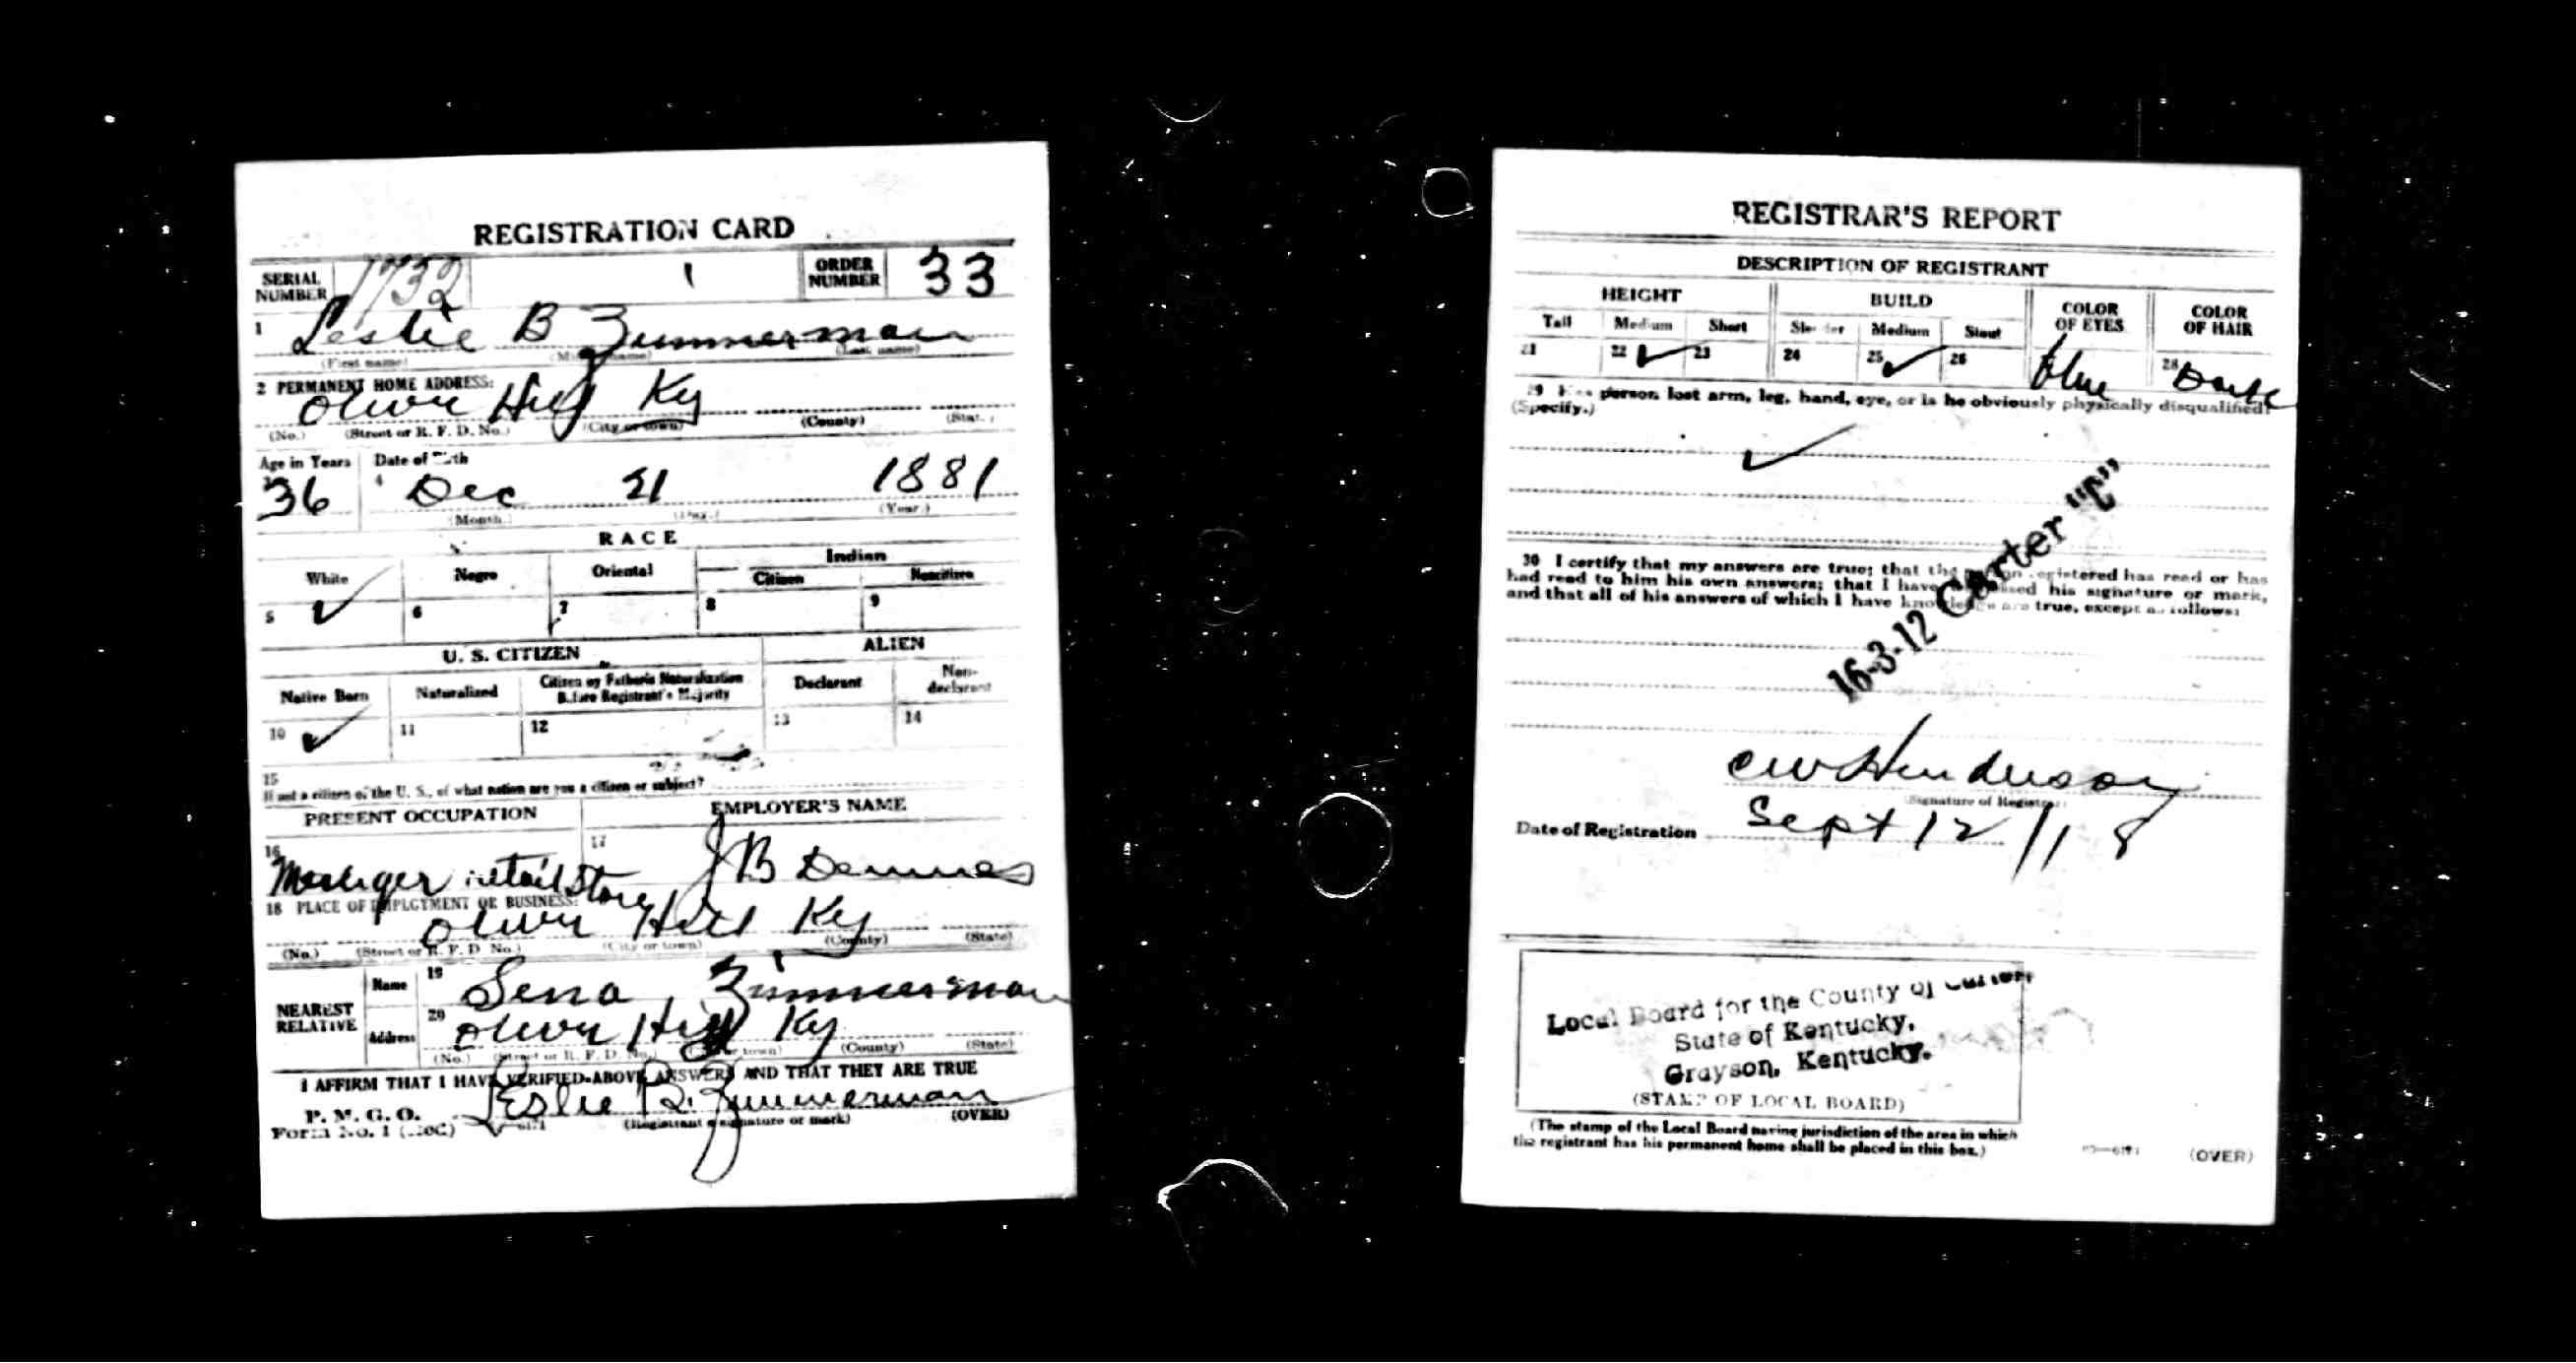 REGISTRATION CARD
SERIAL NUMBER 1732 ORDER NUMBER 33
1 Leslie B Zimmerman
(First name) (Last name)
2 PERMANENT HOME ADDRESS:
Olive Hill Ky
(No.) (Street or R. F. D. No.) (City or town) (County) (State)
Age in Years Date of Birth
36 4 Dec 21 1881
(Month.) (Day.) (Year.)
RACE
White Negro Oriental Indian
Citizen Noncitizen
5 ✓ 6 7 8 9
U. S. CITIZEN ALIEN
Native Born Naturalized Citizen by Father's Naturalization Before Registrant's Majority Declarant Non-declarant
10 ✓ 11 12 13 14
15
If not a citizen of the U. S., of what nation are you a citizen or subject?
PRESENT OCCUPATION EMPLOYER'S NAME
16 retail Store 17 J B
18 PLACE OF EMPLOYMENT OR BUSINESS:
Olive Hill Ky
(No.) (Street or R. F. D. No.) (City or town) (County) (State)
NEAREST RELATIVE
Name 19 Sena Zimmerman
Address 20 Olive Hill Ky
(No.) (Street or R. F. D. No.) (County) (State)
I AFFIRM THAT I HAVE VERIFIED ABOVE ANSWERS AND THAT THEY ARE TRUE
P. M. G. O.
Form No. 1 Leslie B. Zimmerman
(Registrant's signature or mark) (OVER)
REGISTRAR'S REPORT
DESCRIPTION OF REGISTRANT
HEIGHT BUILD COLOR OF EYES COLOR OF HAIR
Tall Medium Short Slender Medium Stout
21 22 ✓ 23 24 25 ✓ 26 blue 28 Dark
29 Has person lost arm, leg, hand, eye, or is he obviously physically disqualified?
(Specify.)
✓
16-3-12 Carter "C"
30 I certify that my answers are true; that the person registered has read or has
had read to him his own answers; that I have witnessed his signature or mark,
and that all of his answers of which I have knowledge are true, except as follows:
C W Henderson
(Signature of Registrar)
Date of Registration Sept 12/18
Local Board for the County of Carter,
State of Kentucky,
Grayson, Kentucky.
(STAMP OF LOCAL BOARD)
(The stamp of the Local Board having jurisdiction of the area in which
the registrant has his permanent home shall be placed in this box.)
(OVER)